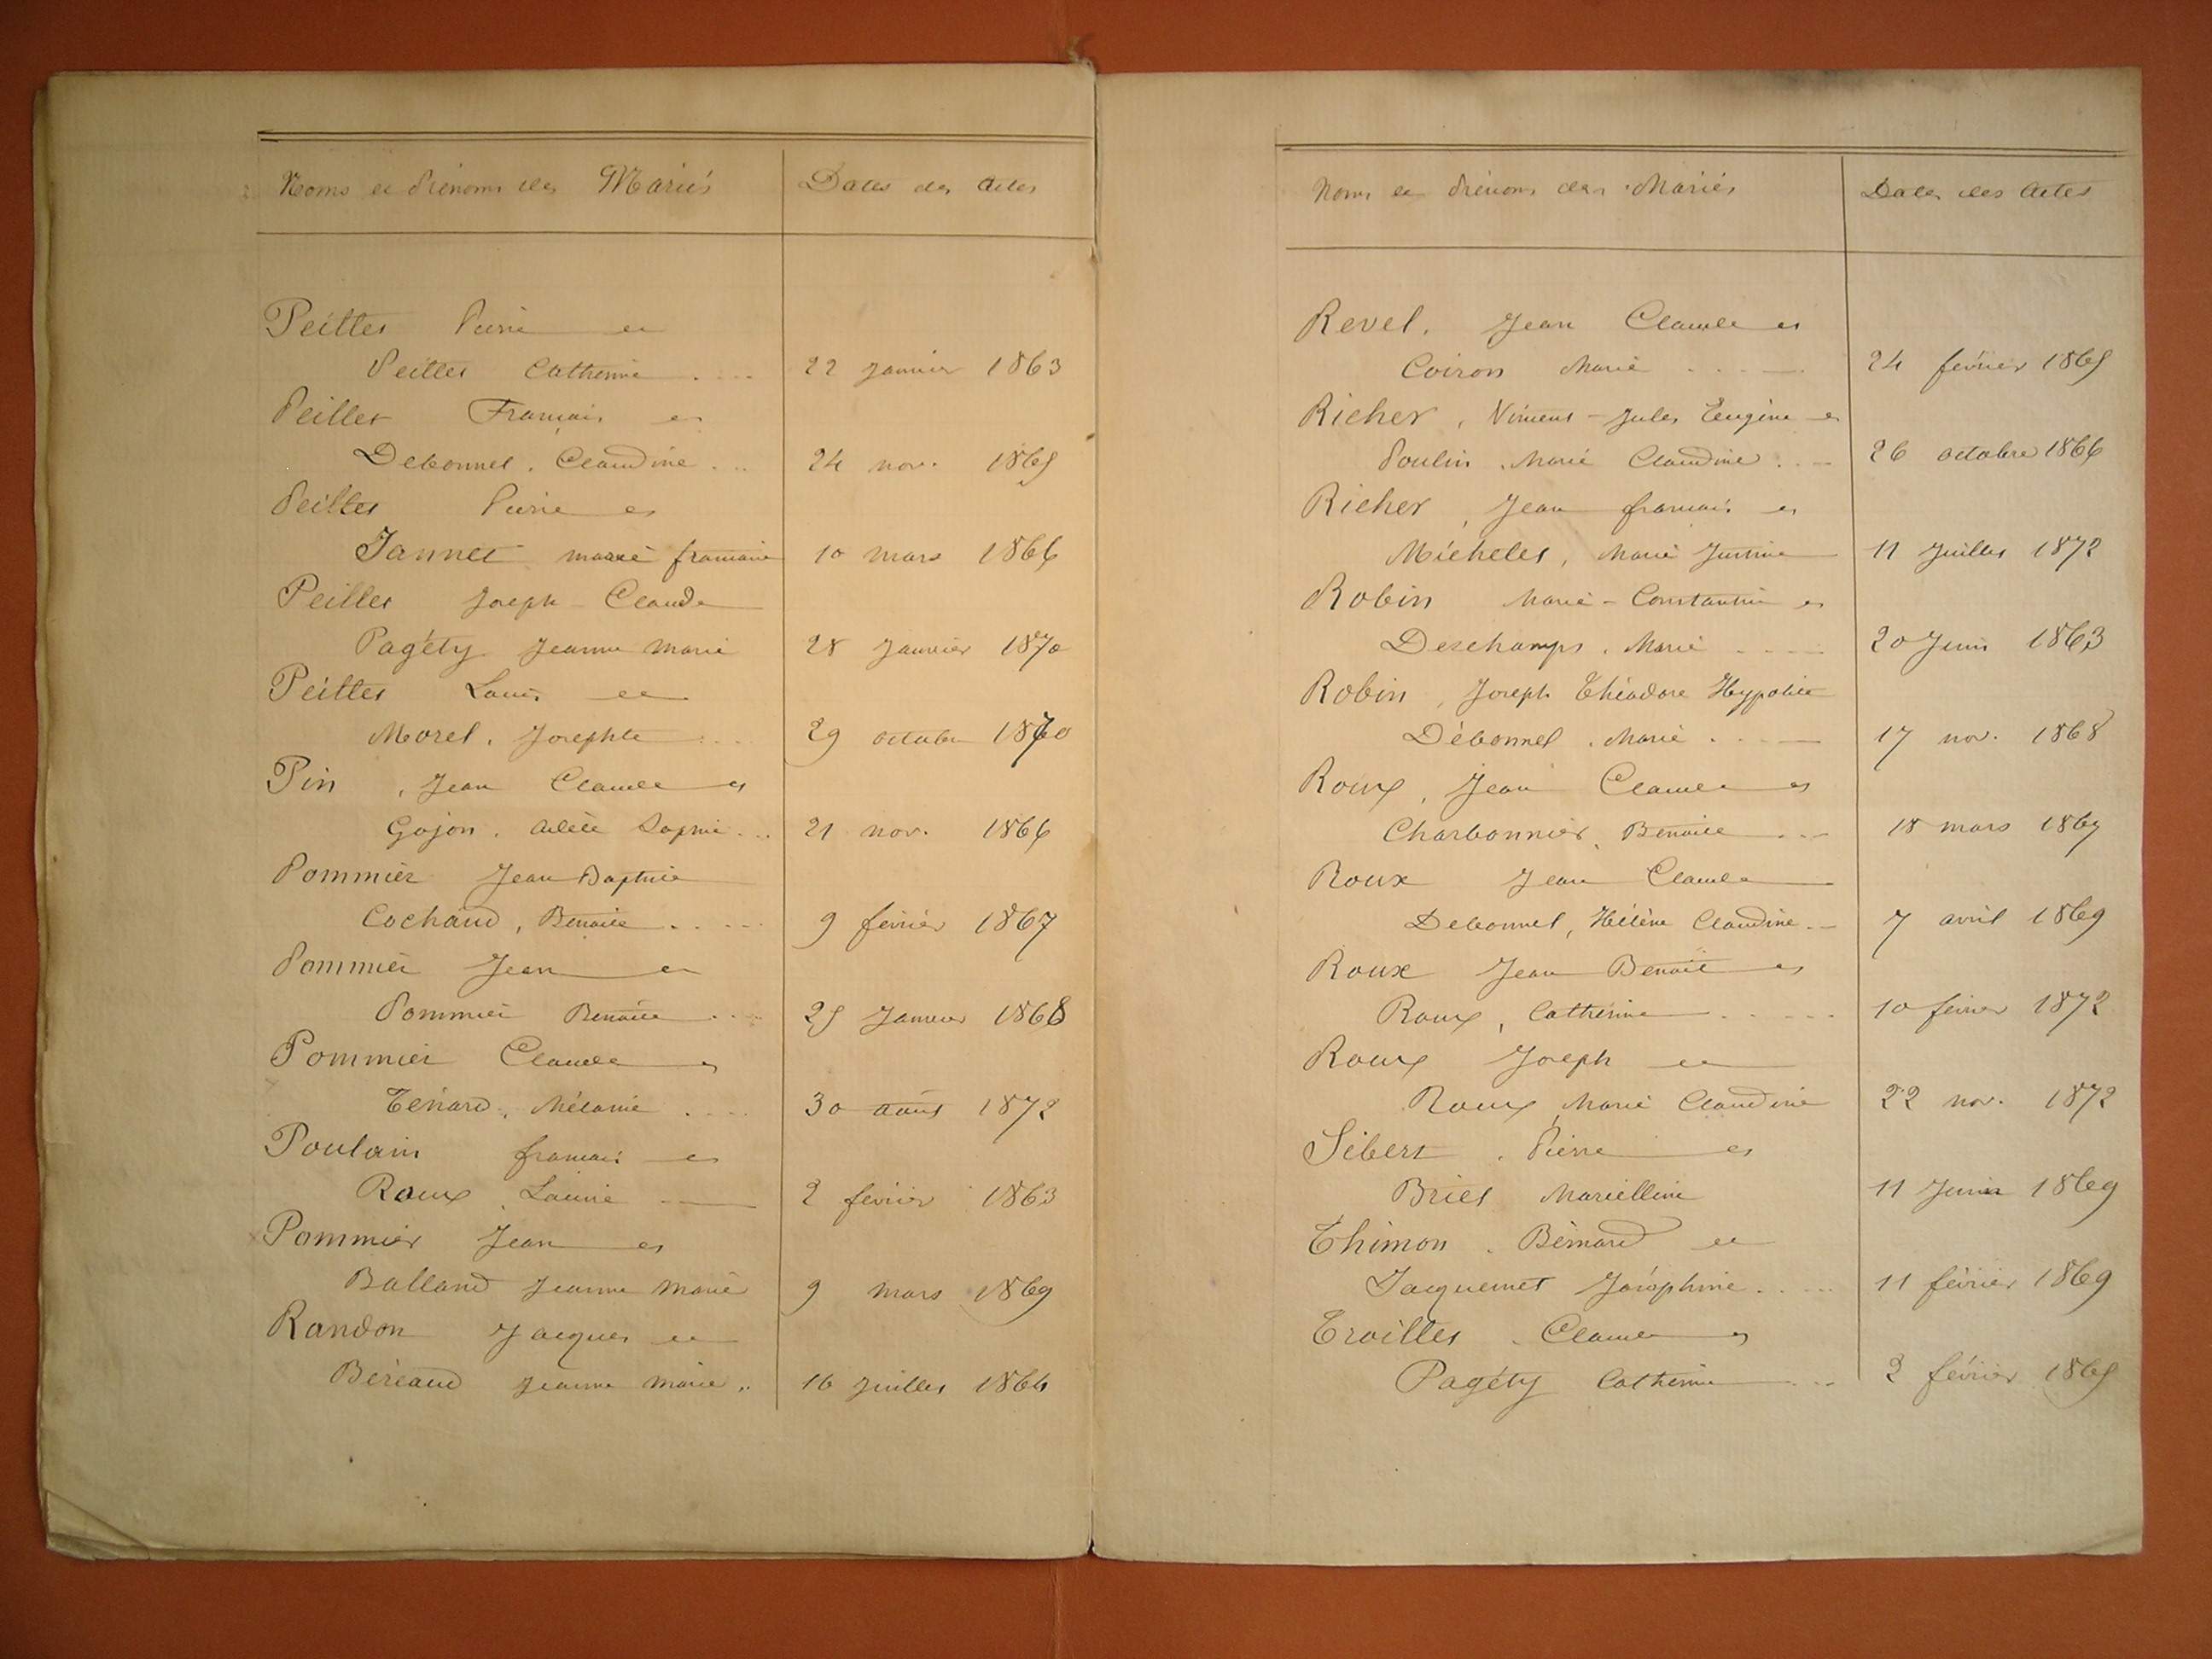 Noms et Prénoms des Mariés Dates des Actes
Peillet Pierre et
Peillet Catherine .... 22 Janvier 1863
Peillet François et
Debonnel, Claudine ... 24 nov. 1865
Peillet Pierre et
Jannet marie françoise 10 mars 1866
Peillet Joseph Claude
Pagéty Jeanne Marie 28 Janvier 1870
Peillet Louis et
Morel, Josephte .... 29 octobre 1870
Pin, Jean Claude et
Gojon, Sophie ... 21 nov. 1866
Pommier Jean Baptiste
Cochard, Benoite ..... 9 février 1867
Pommier Jean et
Pommier Benoite .... 25 Janvier 1868
Pommier Claude et
Ténard, Mélanie .... 30 août 1872
Poulain françois et
Roux, Laurie 2 février 1863
Pommier Jean et
Balland Jeanne Marie 9 mars 1869
Randon Jacques et
Béreaud Jeanne Marie .. 16 Juillet 1864
Noms et Prénoms des Mariés Dates des Actes
Revel, Jean Claude et
Coiron Marie .... 24 février 1865
Richer, Vincent-Jules Eugène et
Poulin, Marie Claudine ... 26 octobre 1866
Richer, Jean françois et
Michelet, Marie Justine 11 Juillet 1872
Robin Marie-Constantin et
Deschamps, Marie .... 20 Juin 1863
Robin, Joseph Théodore Hypolite
Débonnel, Marie .... 17 nov. 1868
Roux, Jean Claude et
Charbonnier, Benoite ... 18 mars 1867
Roux Jean Claude
Debonnel, Hélène Claudine .. 7 avril 1869
Roux Jean Benoit et
Roux, Catherine ..... 10 février 1872
Roux Joseph et
Roux, Marie Claudine 22 nov. 1872
Sibert, Pierre et
Briet Marcelline 11 Juin 1869
Thimon, Bernard et
Jacquemet Joséphine .... 11 février 1869
Troillet, Claude et
Pagéty Catherine ... 2 février 1865